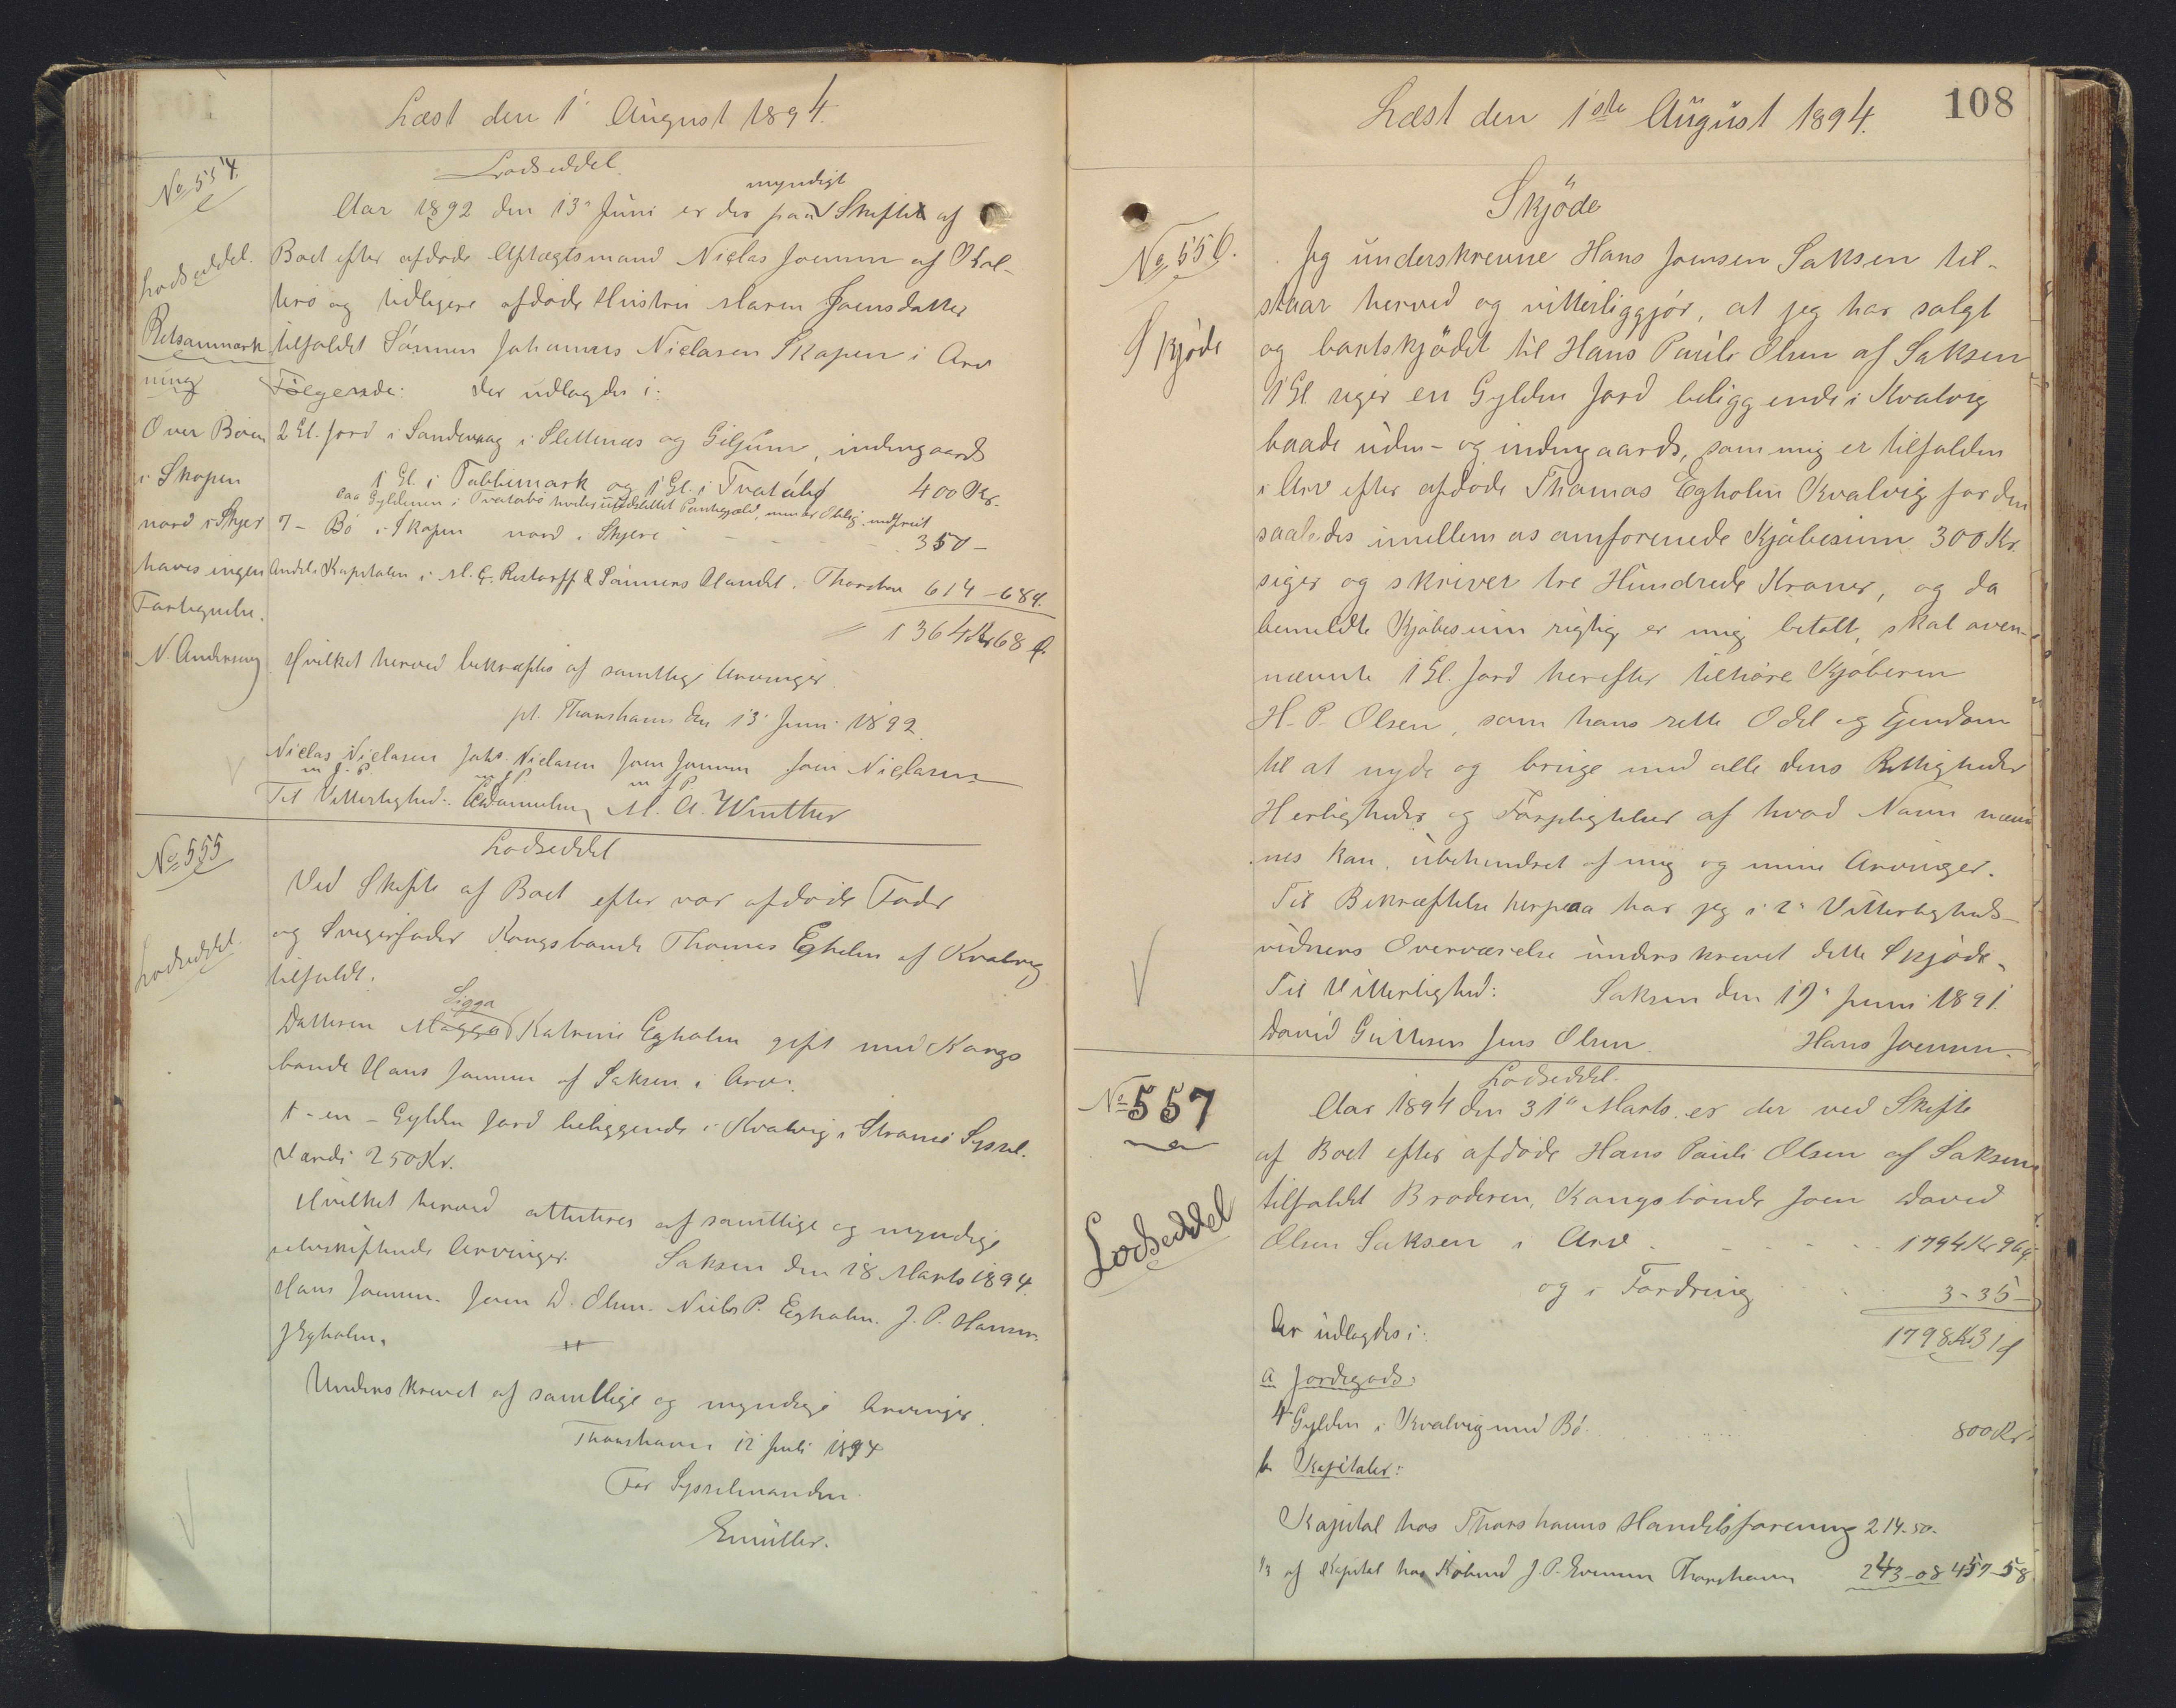 Læst den 1' August 1894.
No 554.
Lodseddel.
myndigt
Aar 1892 den 13' Juni er der paa Skifte af
Lodseddel.
Boet efter afdøde Aftægtsmand Niclas Joensen af Skal-
lerö og tidligere afdøde Hustru Maren Joensdatter
Retsanmærk
tilfaldet Sönnen Johannes Niclasen Skapen i Arv
ning
Følgende: der udlagdes i:
Over Böien
2 Gl. Jord i Sandevaag i Slettenæs og Giljum, indengaards
i Skopen
1 Gl. i Tubbemark og 1 Gl. i Tvatabö 400 Kr.
Paa Gyldenen i Tvatabö hviler Pantegjæld,
nord i Skjer
7 - Bö i Skapen nord i Skjere - - - 350 -
haves ingen
Andel i Kapitalen i M. C. Restorff & Sönners Handel. Thorshavn 614 - 68 Ø.
Fortegnelse.
1364 Kr 68 Ø.
N. Andersen
Hvilket herved bekræftes af samtlige Arvinger.
pt. Thorshavn den 13' Juni 1892.
Niclas Niclasen Johs. Niclasen Joen Joensen Joen Niclasen
m. f. P. m f P. m f P.
Til Vitterlighed: M. A. Winther
No 555
Lodseddel
Ved Skifte af Boet efter vor afdøde Fader
Lodseddel.
og Svigerfader Kongsbonde Thomas Egholm af Kvalvig
tilfaldt.
Sigga
Datteren Magga Katrine Egholm gift med Kongs
bonde Hans Joensen af Saksen i Arv:
1 - en - Gylden Jord beliggende i Kvalvig i Strømö Syssel.
Værdi 250 Kr.
Hvilket herved attesteres af samtlige og myndige
selvskiftende Arvinger. Saksen den 18 Marts 1894.
Hans Joensen. Joen D. Olsen. Niels P. Egholm. J. P. Hansen.
J Egholm.
Underskrevet af samtlige og myndige Arvinger.
Thorshavn 12 Juli 1894
For Sysselmanden
Emüller.
Læst den 1ste August 1894.
108
Skjöde
No 556.
Jeg underskrevne Hans Joensen Saksen til-
staar herved og vitterliggjör, at jeg har solgt
Skjöde
og bortskjödet til Hans Pauli Olsen af Saksen
1 Gl. siger en Gylden Jord beliggende i Kvalvig
baade uden- og indengaards, som mig er tilfalden
i Arv efter afdöde Thomas Egholm Kvalvig for den
saaledes imellem os omforenede Kjöbesum 300 Kr.
siger og skriver tre Hundrede Kroner, og da
bemeldte Kjöbesum rigtig er mig betalt, skal oven-
nævnte 1 Gl. Jord herefter tilhöre Kjöberen
H. P. Olsen, som hans rette Odel og Ejendom
til at nyde og bruge med alle dens Rettigheder
Herligheder og Forpligtelser af hvad Navn næv
nes kan, ubehindret af mig og mine Arvinger.
Til Bekræftelse herpaa har jeg i 2' Vitterligheds-
vidners Overværelse underskrevet dette Skjöde.
Til Vitterlighed: Saksen den 19' Juni 1891.
David Guttesen Jens Olsen. Hans Joensen.
No 557
Lodseddel.
Aar 1894 den 31' Marts. er der ved Skifte
af Boet efter afdöde Hans Pauli Olsen af Saksen
tilfaldet Broderen, Kongsbonde Joen David
Lodseddel
Olsen Saksen i Arv . - - - - 1794 Kr 96 Ø.
og i Fordring . . . 3 - 35 -
Der udlagdes i: 1798 Kr 31 Ø
a Jordegods:
4 Gylden i Kvalvig med Bö 800 Kr.
b Kapitaler:
Kapital hos Thorshavns Handelsforening 214 - 50.
1/3 af Kapital hos Köbmd J. P. Evensen Thorshavn 243 - 08 457 - 58